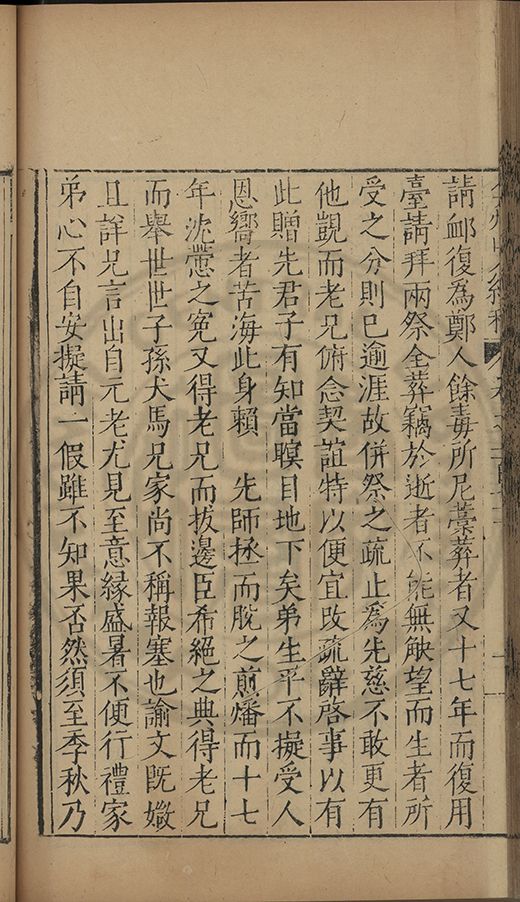 請邮復為鄭人餘毒所尼藁葬者又十七年而復用
臺請拜兩祭全葬竊於逝者不能無觖望而生者所
受之分則已逾涯故併祭之疏止為先慈不敢更有
他覬而老兄俯念契誼特以便宜改疏辭啓事以有
此贈先君子有知當瞑目地下矣弟生平不擬受人
恩嚮者苦海此身賴 先師拯而脫之煎燔而十七
年沈懘之寃又得老兄而拔邊臣希絕之典得老兄
而舉世世子孫犬馬兄家尚不稱報塞也諭文旣㜫
且詳兄言出自元老尤見至意緣盛暑不便行禮家
弟心不自安擬請一假雖不知果否然須至季秋乃